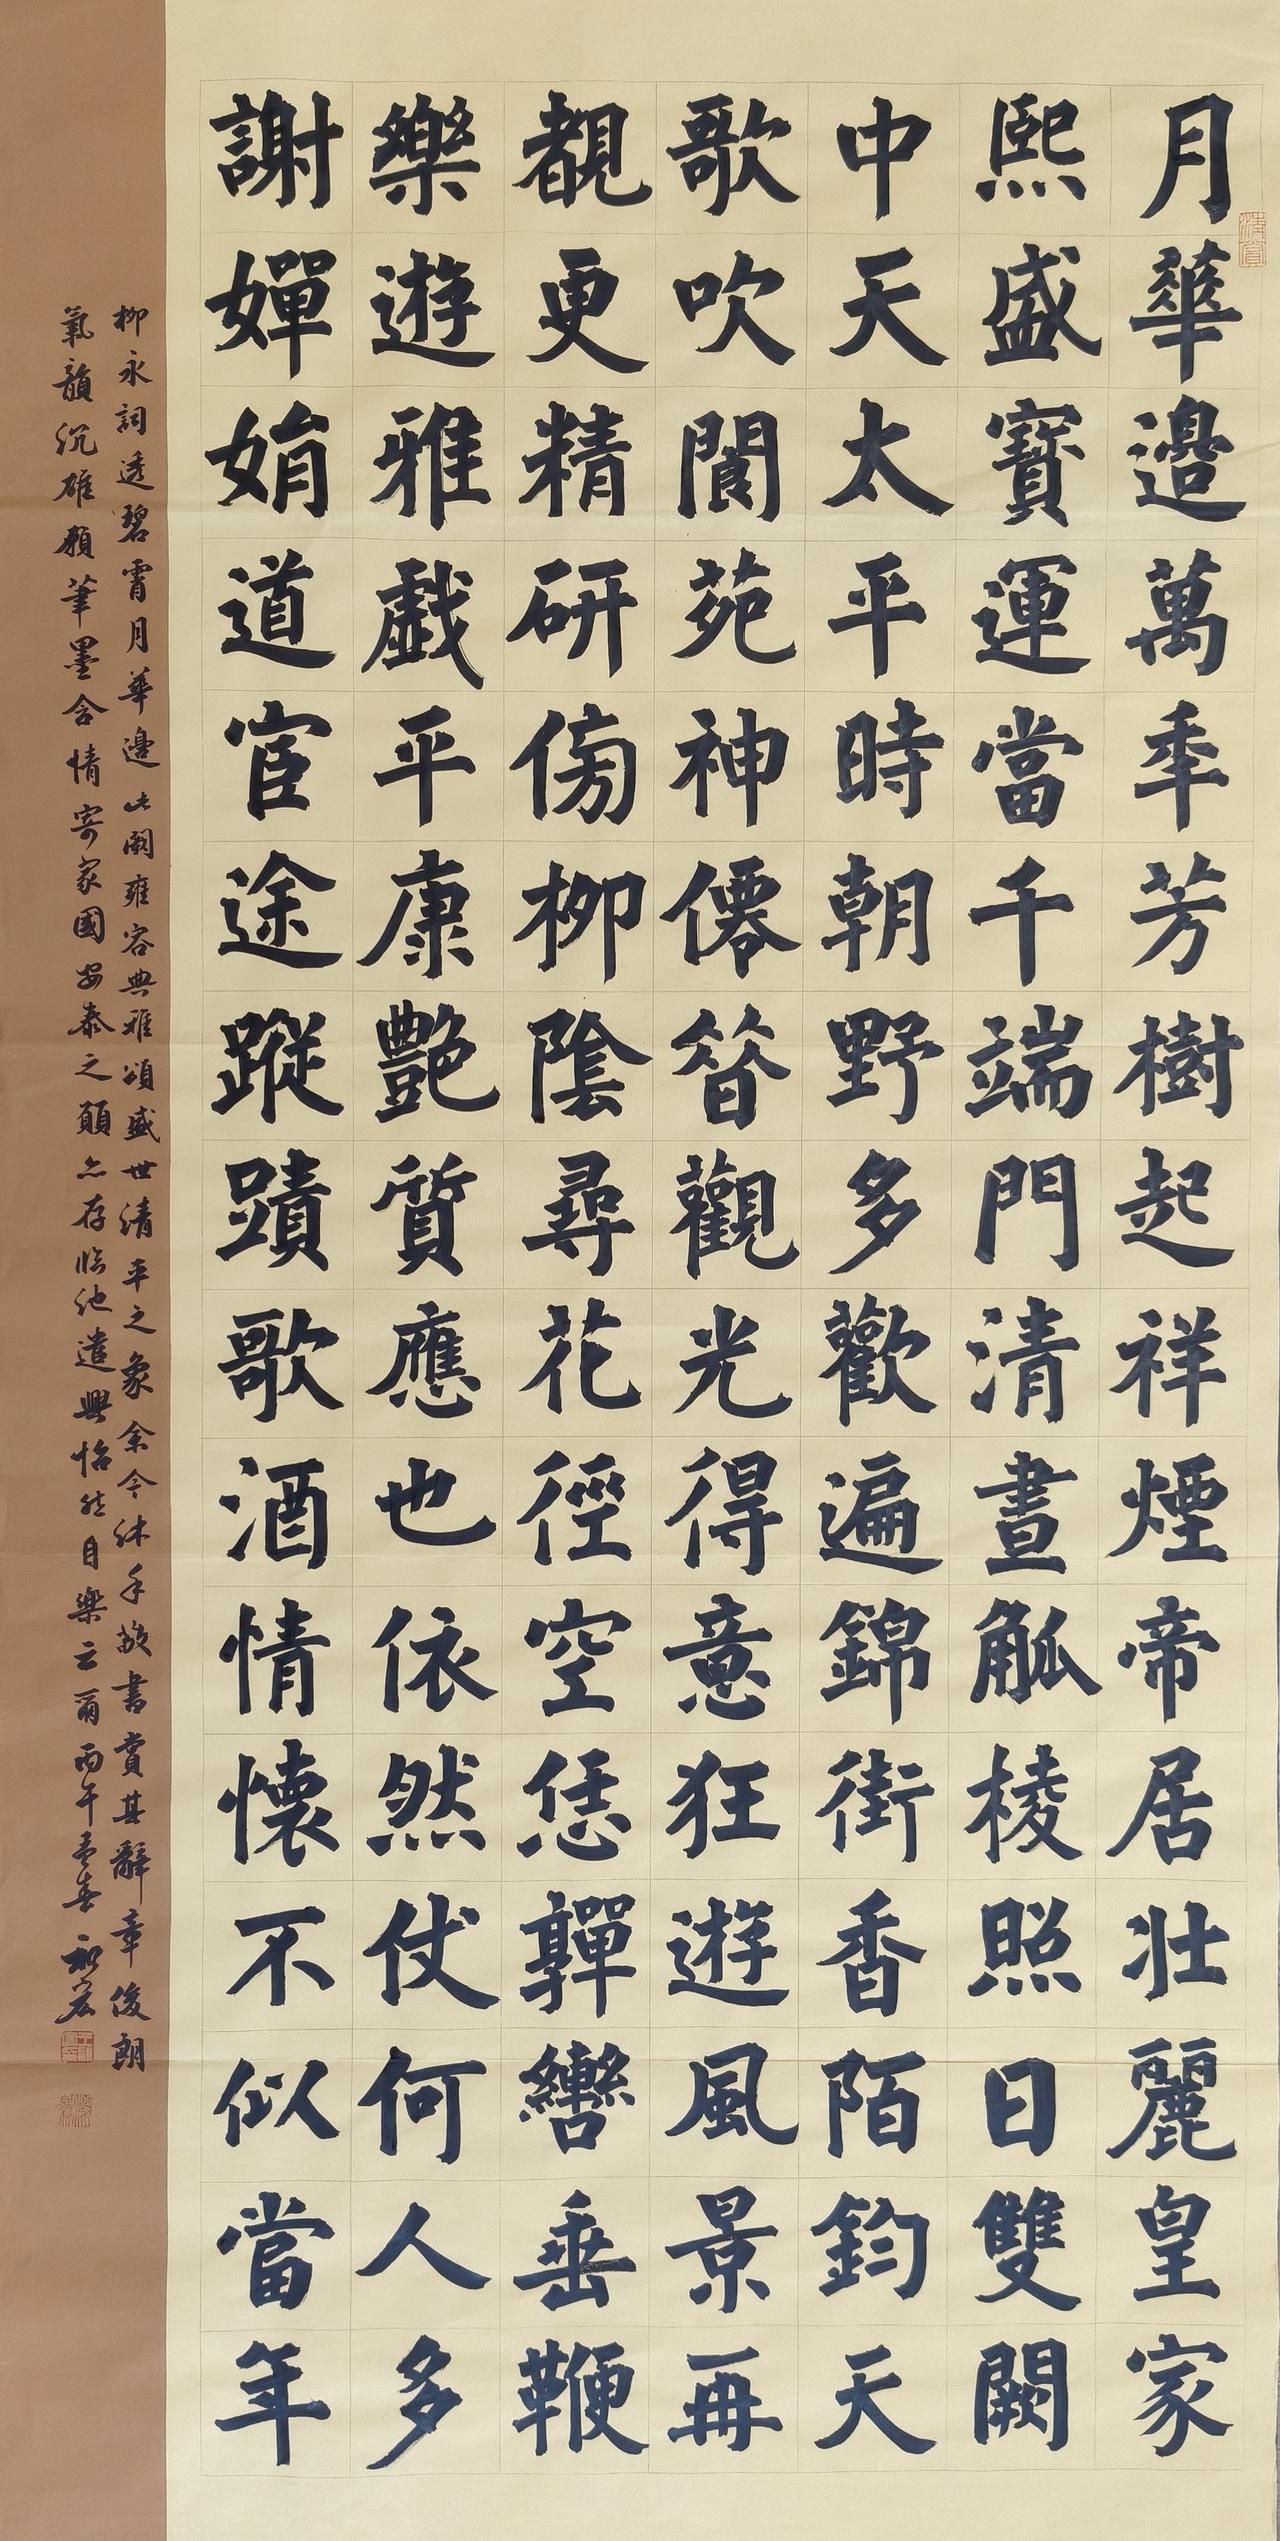 月華邊萬季芳樹起祥煙帝居壯麗皇家
熙盛寶運當千端門清晝觚棱照日雙闕
中天太平時朝野多歡遍錦街香陌鈞天
歌吹閬苑神僊昝觀光得意狂遊風景再
覩更精研傍柳陰尋花徑空恁嚲轡垂鞭
樂遊雅戲平康艷質應也依然仗何人多
謝嬋娟道宦途蹤蹟歌酒情懷不似當年
柳永詞透碧霄月華邊此闋雍容典雅頌盛世清平之象余今休手敬書賞其辭章俊朗
氣韻沉雄願筆墨含情寄家國安泰之願亦存臨池遣興怡然自樂云爾丙午孟春
清賞